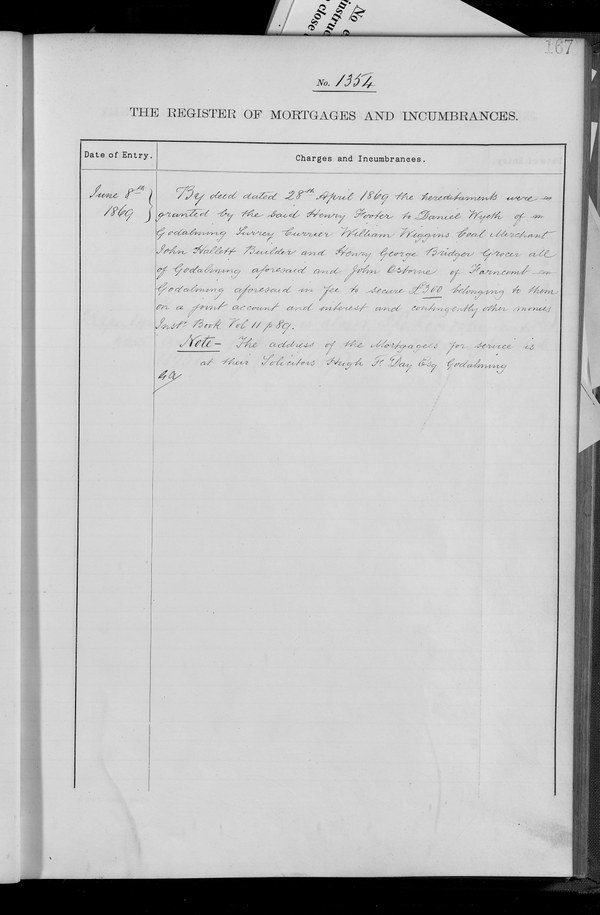 No
instruc
o close
167
No. 1354
THE REGISTER OF MORTGAGES AND INCUMBRANCES.
Date of Entry.
Charges and Incumbrances.
June 8th 1869
By deed dated 28th April 1869 the hereditaments were
granted by the said Henry Foster to Daniel Wyeth of
Godalming Surrey Currier William Wiggins Coal Merchant
John Hallett Builder and Henry George Bridger Grocer all
of Godalming aforesaid and John Osborne of Farncomb
Godalming aforesaid in fee to secure £300 belonging to them
on a joint account and interest and contingently other monies
Inst. Book Vol 11 p 89.
Note - The address of the Mortgagees for service is
at their Solicitors Hugh F. Day Esq Godalming